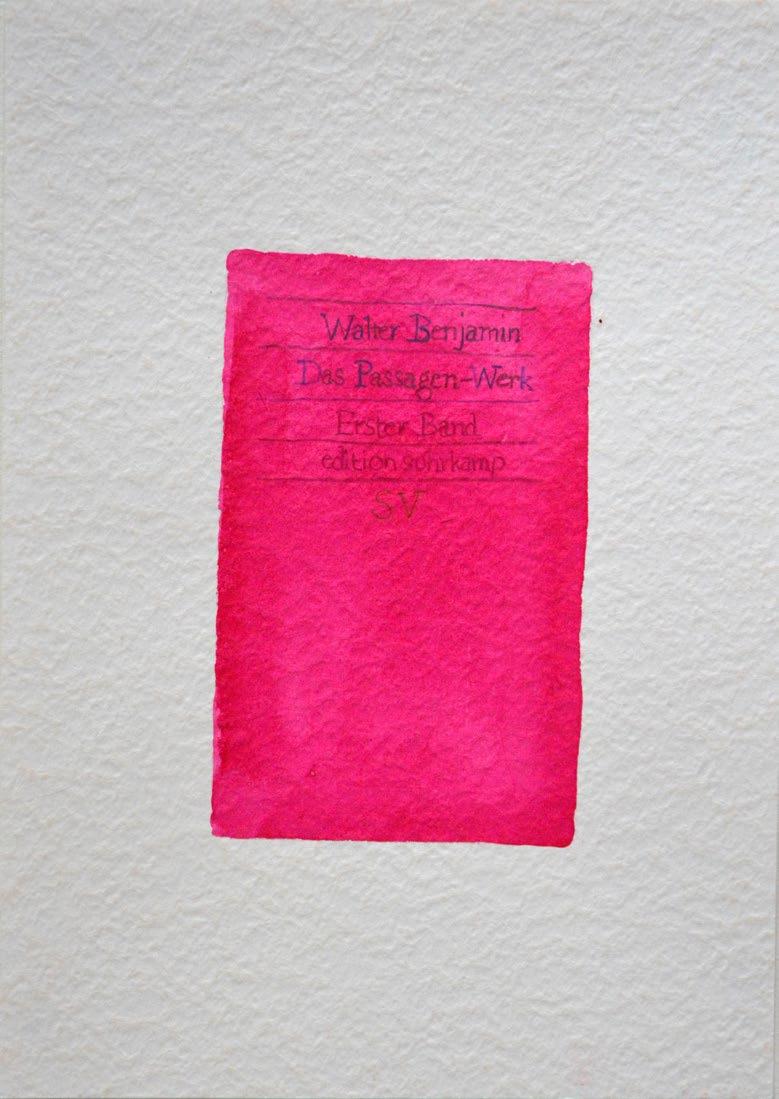 Walter Benjamin
Das Passagen-Werk
Erster Band
edition suhrkamp
SV